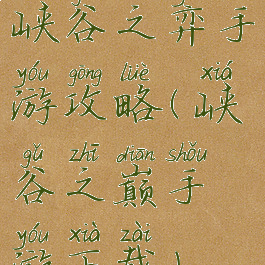 峡谷之弈手
yóu gōng lüè xiá
游攻略(峡
gǔ zhī diān shǒu
谷之巅手
yóu xià zài
游下载)